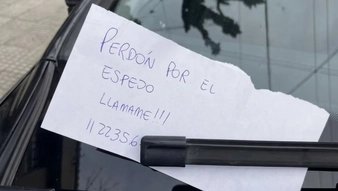 PERDÓN POR EL
ESPEJO
LLAMAME!!!
11 2235.6